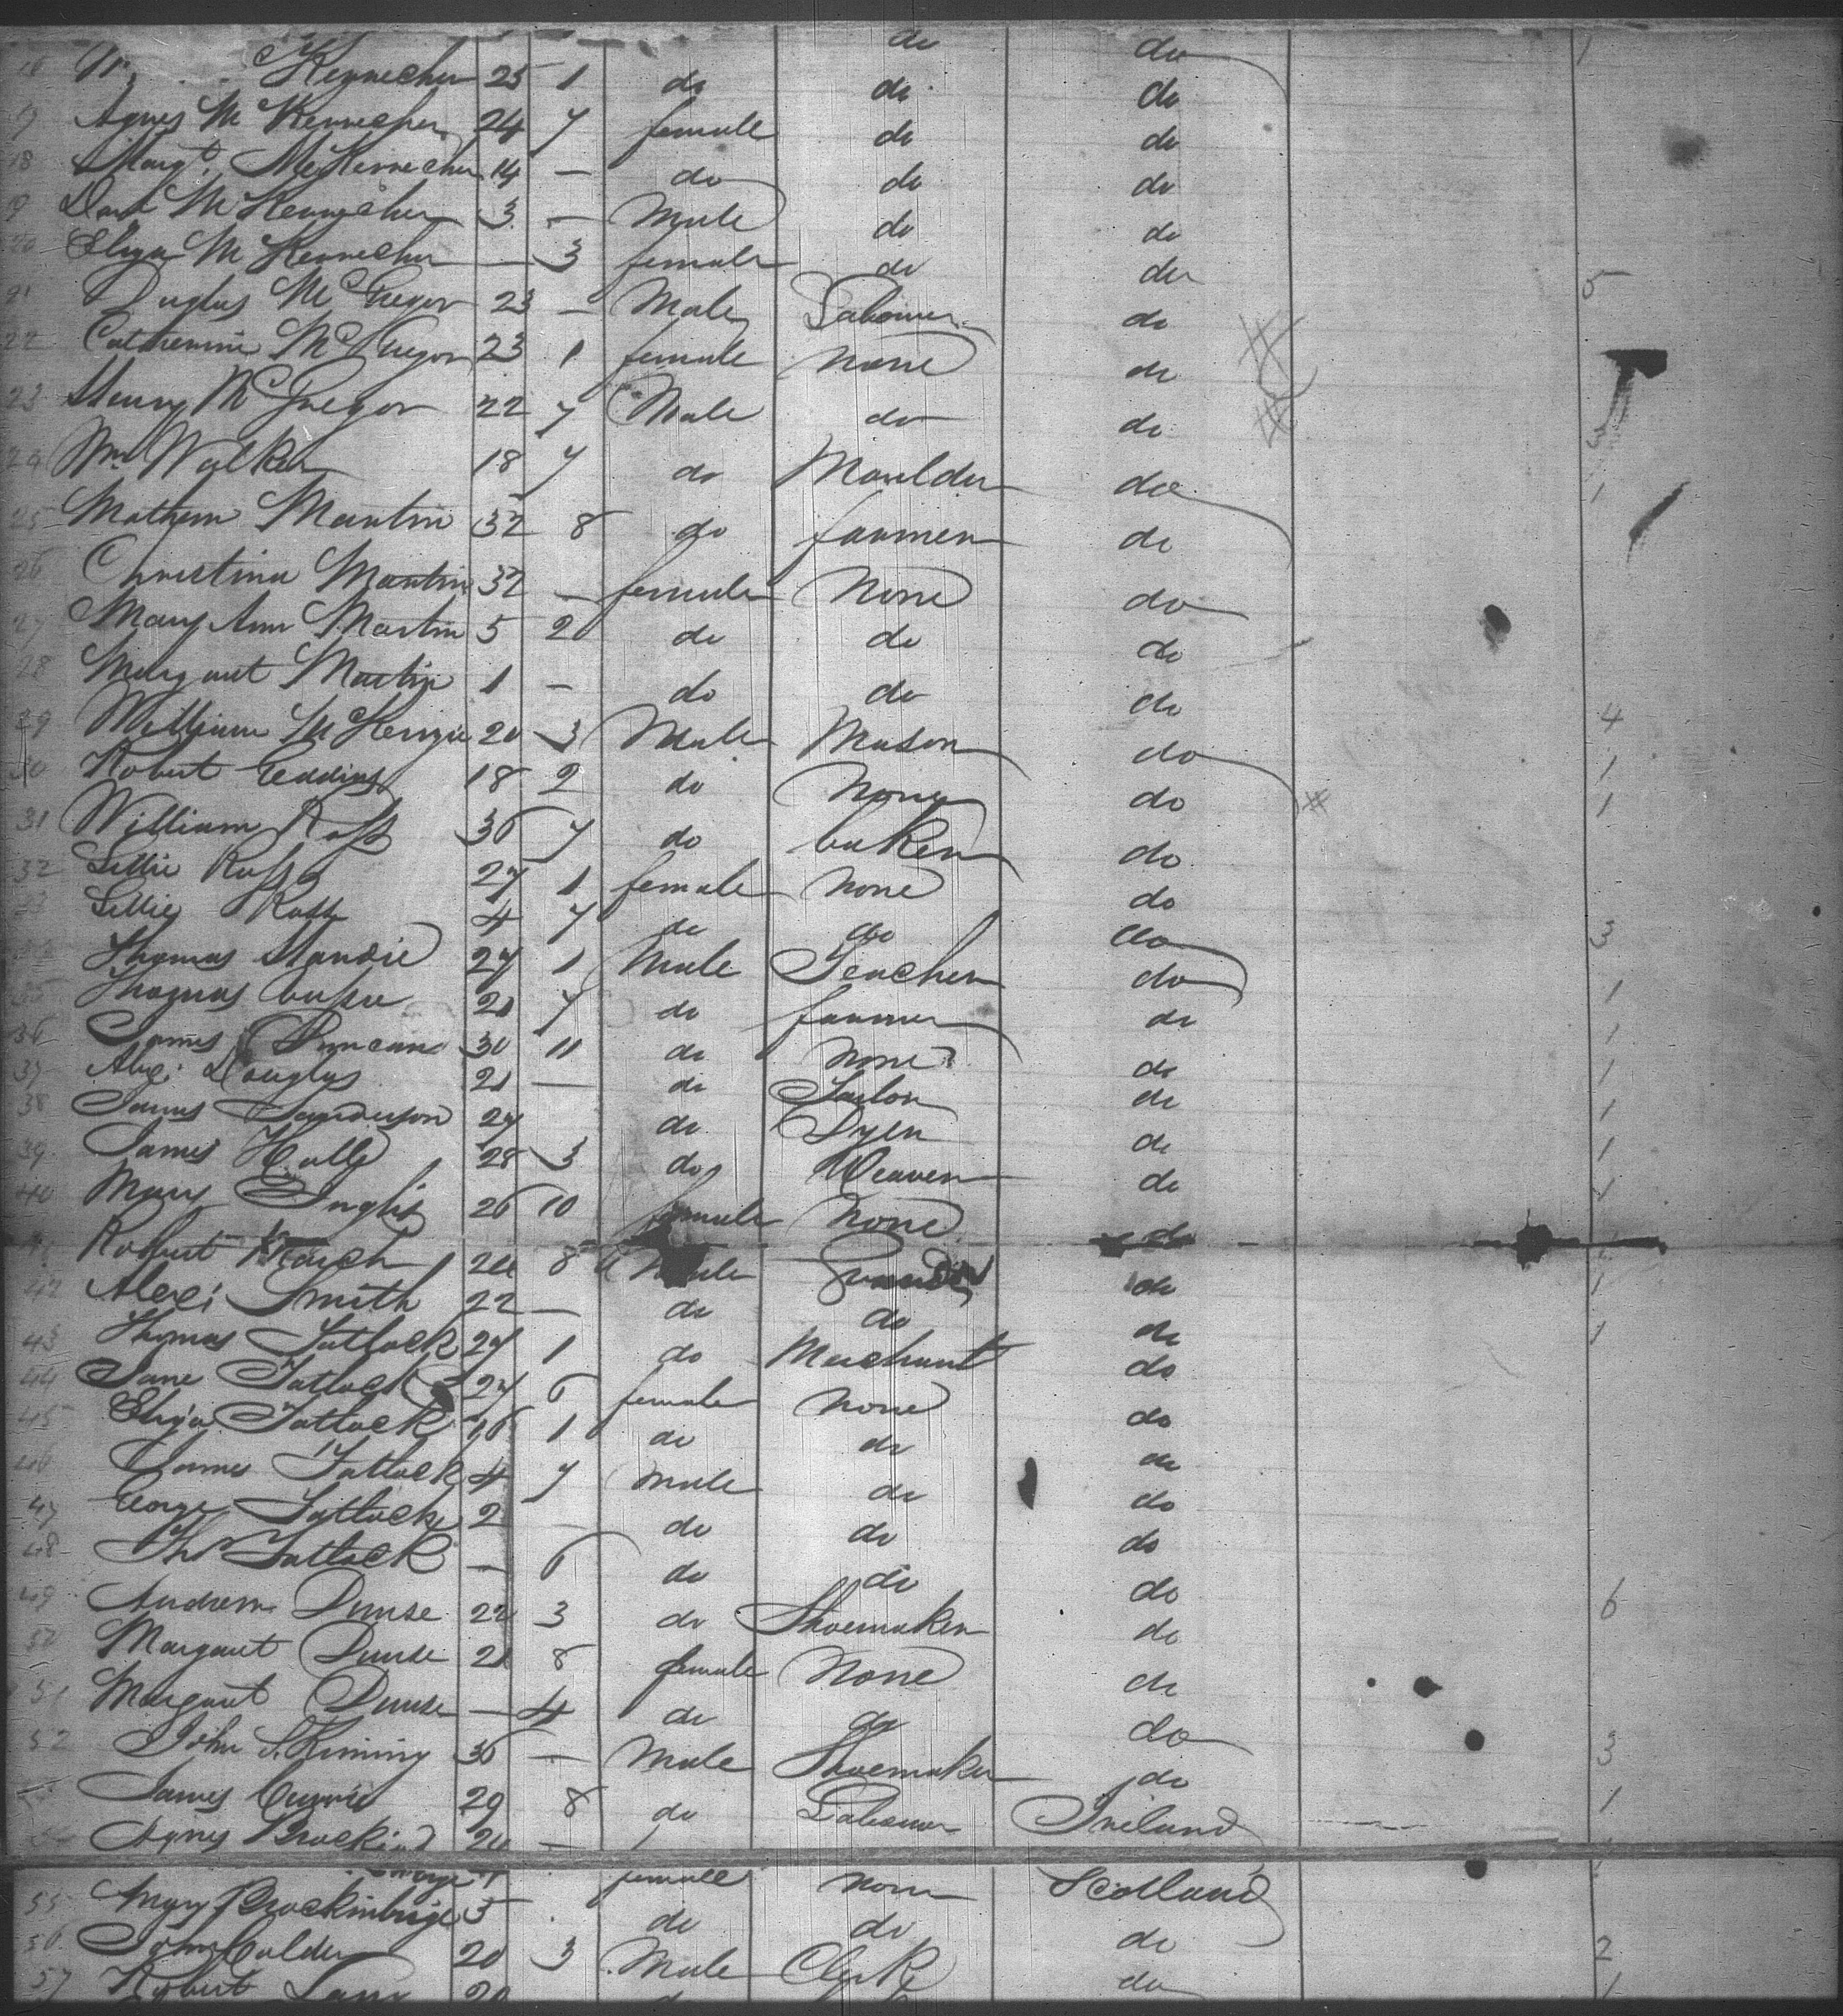 do do 1
16 Kennecher 25 1 do do do
17 Agnes McKennecher 24 7 female do do
18 Margt. McKennecher 14 — do do do
19 Davd McKennecher 3 — Male do do
20 Eliza McKennecher — 3 female do do 5
21 Duglas McGregor 23 — Male Labourer do
22 Catherine McGregor 23 1 female none do
23 Henry McGregor 22 7 Male do do 3
24 Wm Walker 18 7 do Moulder do 1
25 Mathew Martin 32 8 do farmer do
26 Christina Martin 32 — female None do
27 Mary Ann Martin 5 2 do do do
28 Margaret Martin 1 — do do do 4
29 William McKenzie 20 3 Male Mason do 1
30 Robert Geddins 18 2 do None do 1
31 William Ross 36 7 do baker do
32 Lillie Ross 27 1 female none do
33 Lillies Ross 4 7 do do do 3
Thomas 27 1 Male Teacher do 1
35 Thomas 21 7 do farmer do 1
36 James Duncan 30 11 do none do 1
37 Alex: Douglas 21 — do Tailor do 1
38 James Sanderson 27 do Dyer do 1
39 James Hall 28 3 do Weaver do 1
40 Mary Inglis 26 10 female none do
41 Robert 24 8 Male do 1
42 Alex: Smith 22 — do do do 1
43 Thomas Tatlock 27 1 do Merchant do
44 Jane Tatlock 27 6 female none do
45 Eliza Tatlock 1 do do do
46 James Tatlock 4 7 Male do do
47 George Tatlock 2 — do do do
48 Thos Tatlock — 6 do do do 6
49 Andrew Dunse 22 3 do Shoemaker do
50 Margaret Dunse 21 8 female None do
51 Margaret Dunse — 4 do do do 3
52 John Skiming 36 — Male Shoemaker do 1
James Currie 29 8 do Labourer Ireland
Agnes — female none Scotland
55 Mary Brockinbrige 3 do do do 2
56 John Calder 20 3 Male Clerk do 1
57 Robert 20